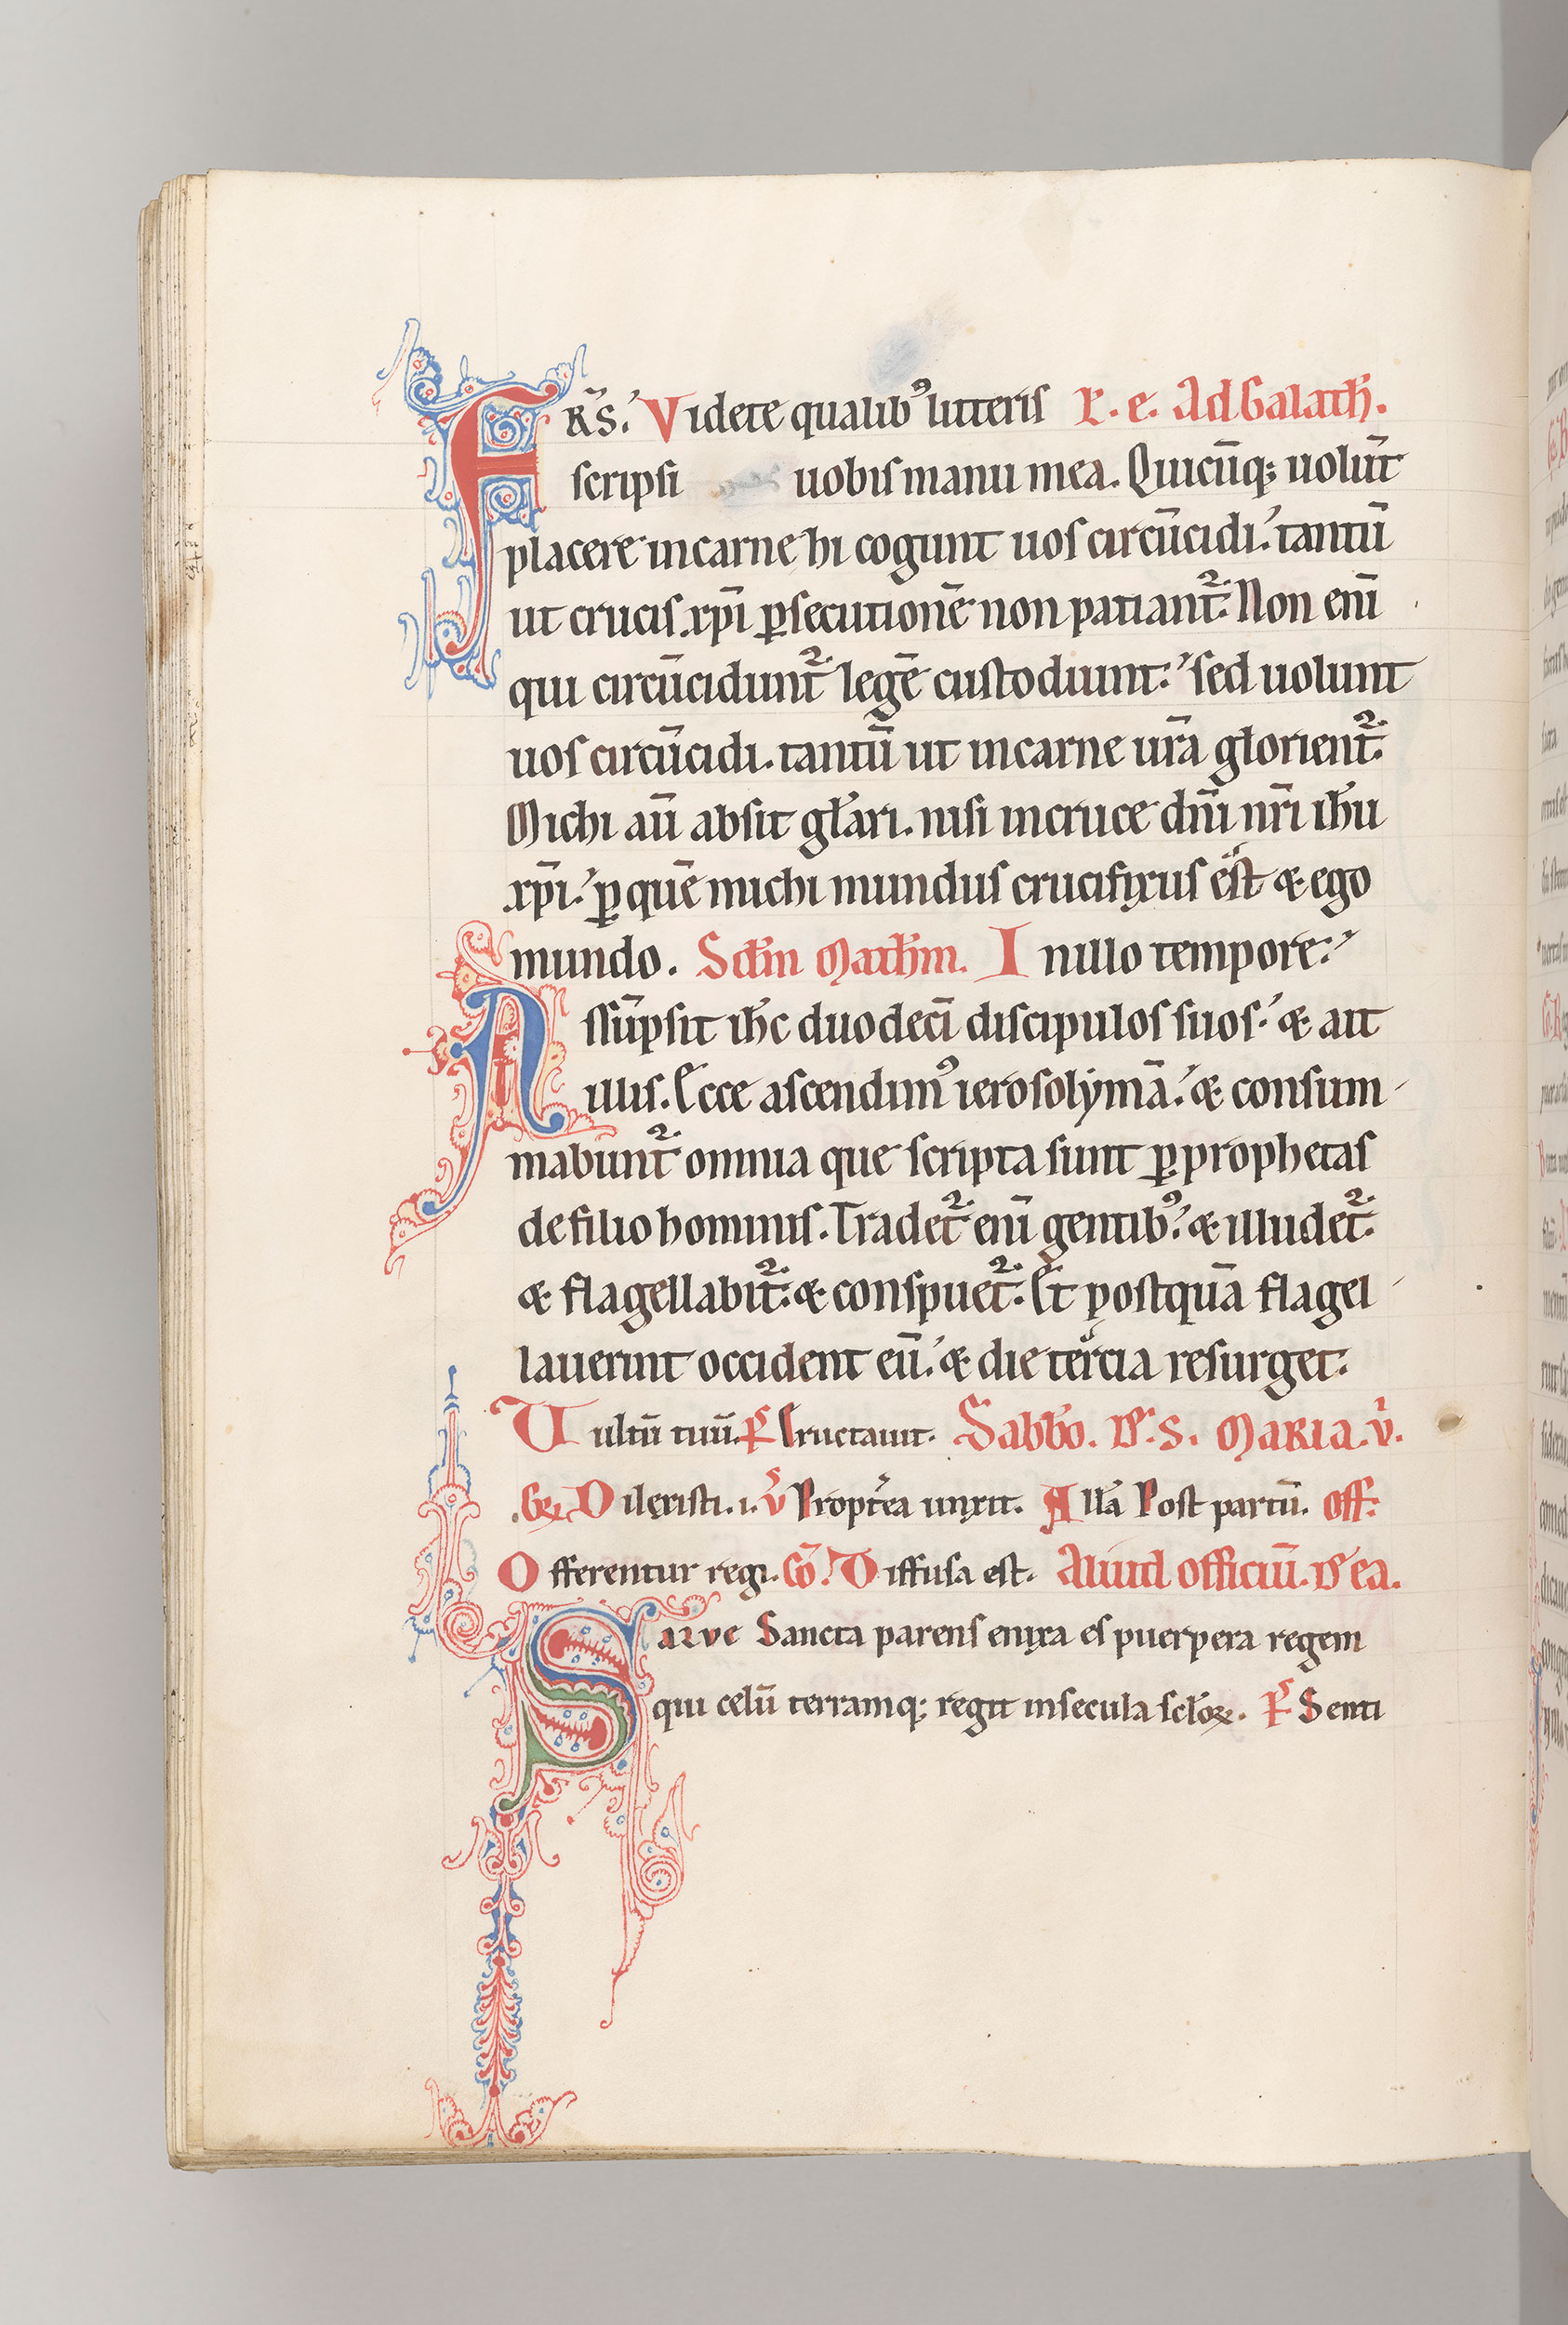 FR̄S. Videte qualib⁹ litteris L. e. Ad Galath̄.
scripsi uobis manu mea. Quicūq; uolūt
placere in carne hi cogunt uos circūcidi. tantū
ut crucis xp̄i ꝑsecutionē non patiant᷑. Non enī
qui circūcidunt᷑ legē custodiunt. sed uolunt
uos circūcidi. tantū ut in carne ur̄a glorient᷑.
Michi aū absit gl̄ari. nisi in cruce dn̄i nr̄i ih̄u
xp̄i. ꝑ quē michi mundus crucifixus est & ego
mundo. Scd̄m Math̄m. In illo tempore.
Assūpsit ih̄c duodecī discipulos suos. & ait
illis. Ecce ascendim⁹ ierosolymā. & consum
mabunt᷑ omnia que scripta sunt ꝑ prophetas
de filio hominis. Tradet᷑ enī gentib⁹. & illudet᷑.
& flagellabit᷑. & conspuet᷑. Et postquā flagel
lauerint occident eū. & die tercia resurget.
Uultū tuū. P̄s Eructauit. Sabb̄o. D̄. S. MARIA. v̄.
Gr̄. Dilexisti. i. v̄ Propt̄ea unxit. All̄a Post partū. Off.
Offerentur regi. Cō. Diffusa est. Aliud officiū. D̄ ea.
SALVE Sancta parens enixa es puerpera regem
qui celū terramq; regit in secula scl̄oꝝ. P̄s Senti